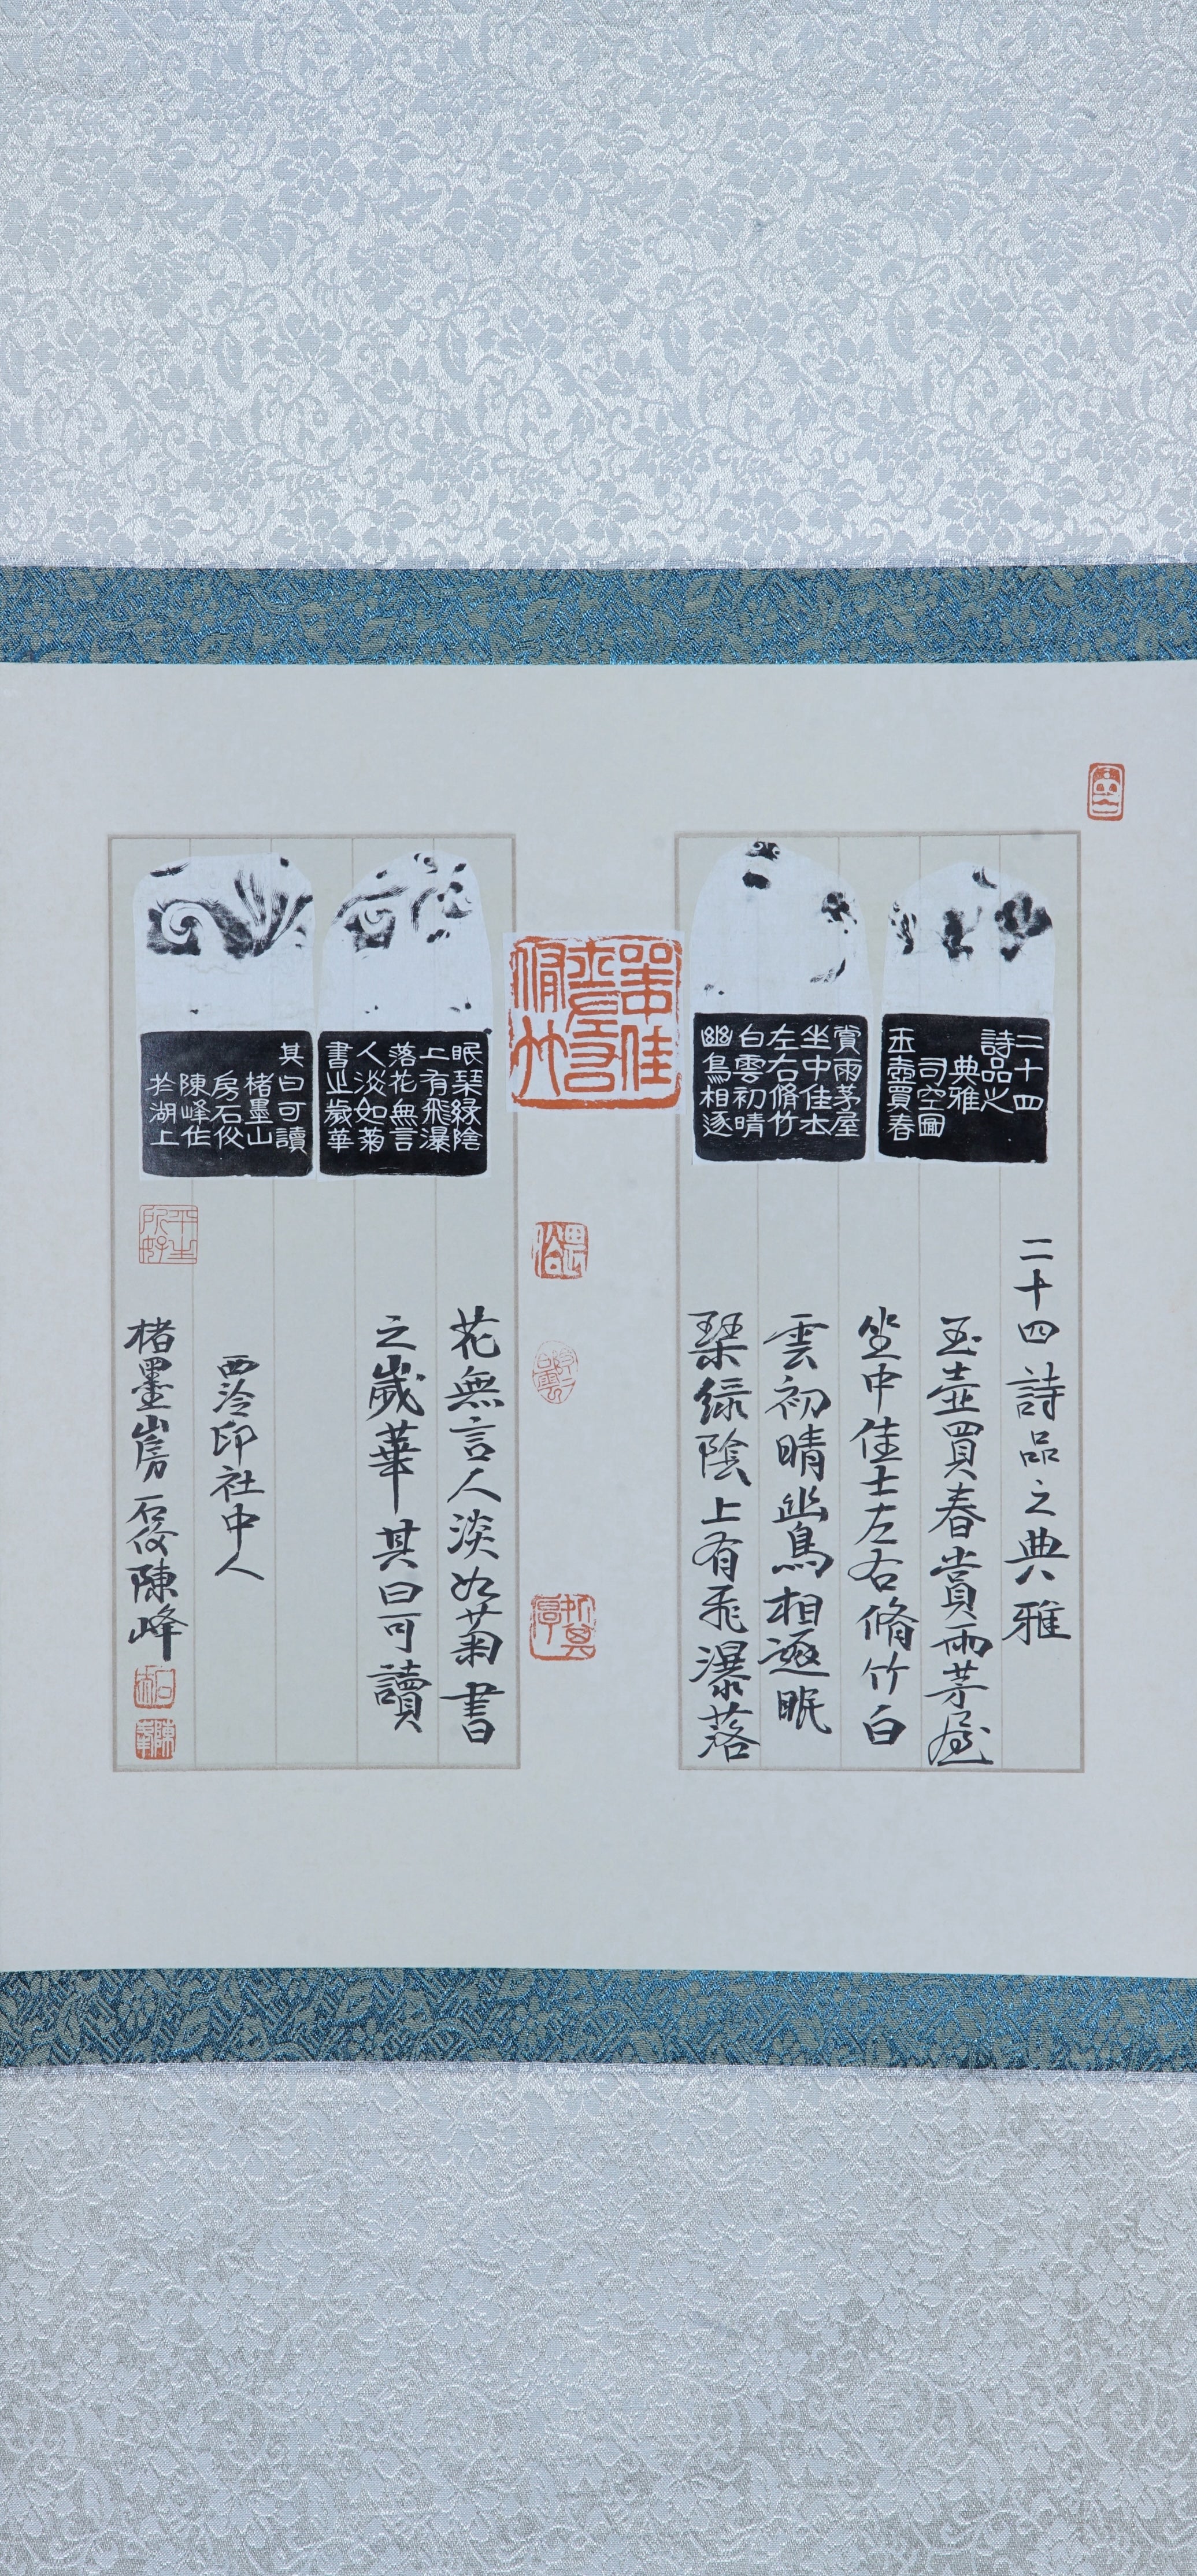 二十四
詩品之
典雅
司空圖
玉壺買春
賞雨茅屋
坐中佳士
左右脩竹
白雲初晴
幽鳥相逐
眠琹綠陰
上有飛瀑
落花無言
人淡如菊
書之歲華
其曰可讀
楮墨山
房石佼
陳峰作
於湖上
二十四詩品之典雅
玉壺買春賞雨茅屋
坐中佳士左右脩竹白
雲初晴幽鳥相逐眠
琹綠陰上有飛瀑落
花無言人淡如菊書
之歲華其曰可讀
西泠印社中人
楮墨山房石佼陳峰
平生
所好